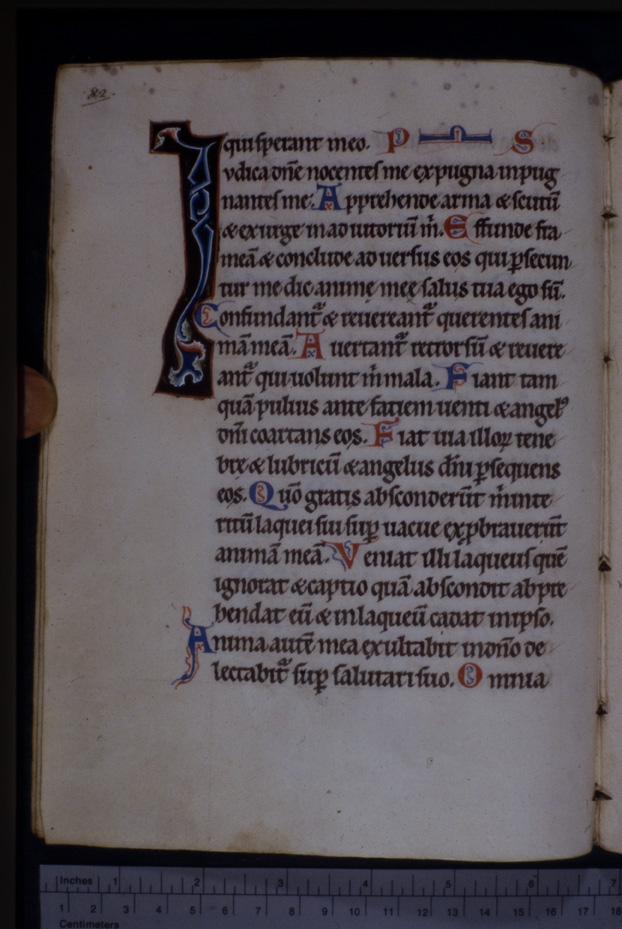 82
qui sperant in eo. P S
Iudica dñe nocentes me expugna inpug
nantes me. Apprehende arma & scutũ
& exurge in adiutoriũ m̃. Effunde fra
meã & conclude aduersus eos qui ꝑsecun
tur me dic anime mee salus tua ego sũ.
Confundant᷑ & reuereant᷑ querentes ani
mã meã. Auertant᷑ retrorsũ & reuere
ant᷑ qui uolunt m̃ mala. Fiant tam
quã puluis ante faciem uenti & angelꝰ
dñi coartans eos. Fiat uia illoꝝ tene
bre & lubricũ & angelus dñi ꝑsequens
eos. Qũo gratis absconderũt m̃ inte
ritũ laquei sui suꝑ uacue exꝓbrauerũt
animã meã. Veniat illi laqueus quẽ
ignorat & captio quã abscondit ab pre
hendat eũ & in laqueũ cadat in ipso.
Anima autẽ mea exultabit in dño de
lectabit᷑ suꝑ salutari suo. Omnia
Inches 1 2 3 4 5 6 7
1 2 3 4 5 6 7 8 9 10 11 12 13 14 15 16 17 18
Centimeters